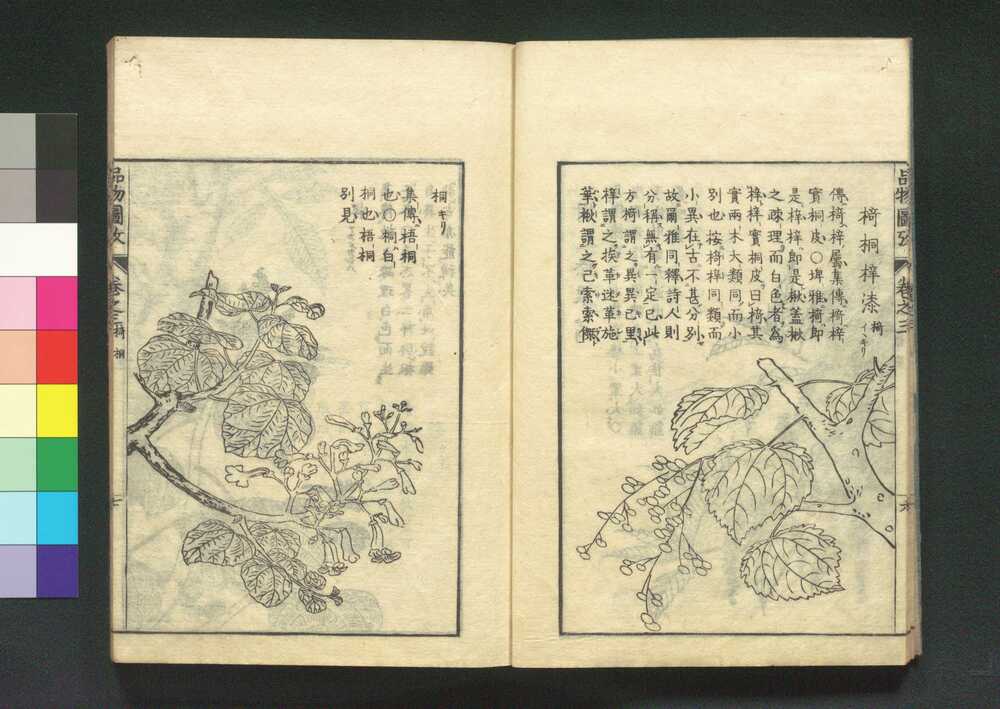 品物圖攷 卷之三
椅桐梓漆 椅 イヽギリ
傳椅梓屬集傳椅梓
實桐皮〇埤雅椅即
是梓梓即是楸蓋楸
之疎理而白色者為
梓梓實桐皮曰椅其
實兩木大類同而小
別也按椅梓同類而
小異在古不甚分別
故爾雅同釋詩人則
分稱無有一定已此
方椅謂之異異已里
梓謂之挨革迷革施
葉楸謂之己索索傑
品物圖攷 卷之三 椅 桐
桐 キリ
集傳梧桐
也〇桐白
桐也梧桐
別見